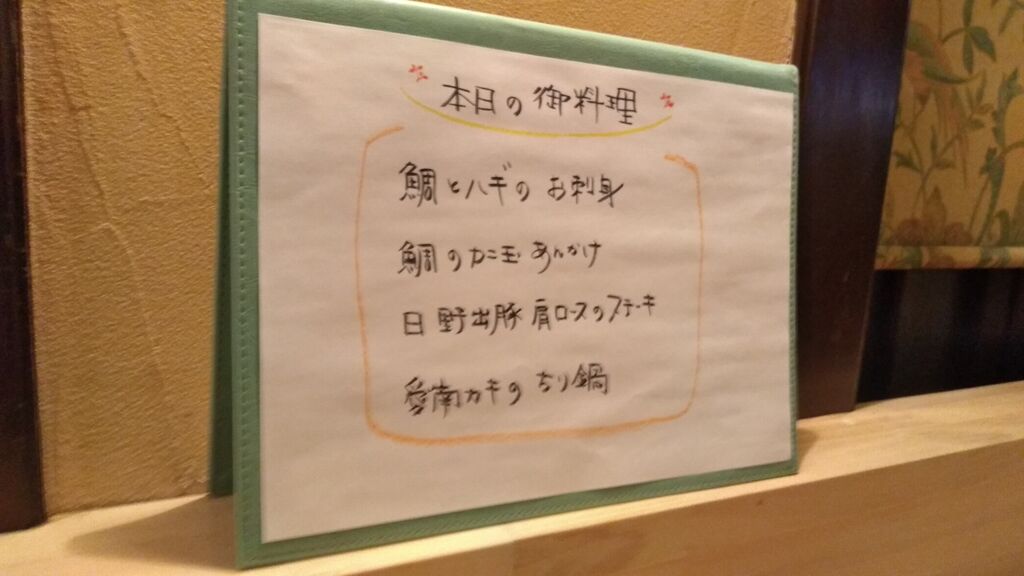 本日の御料理
鯛とハギのお刺身
鯛のカニ玉あんかけ
日野出豚肩ロースのステーキ
愛南カキのちり鍋